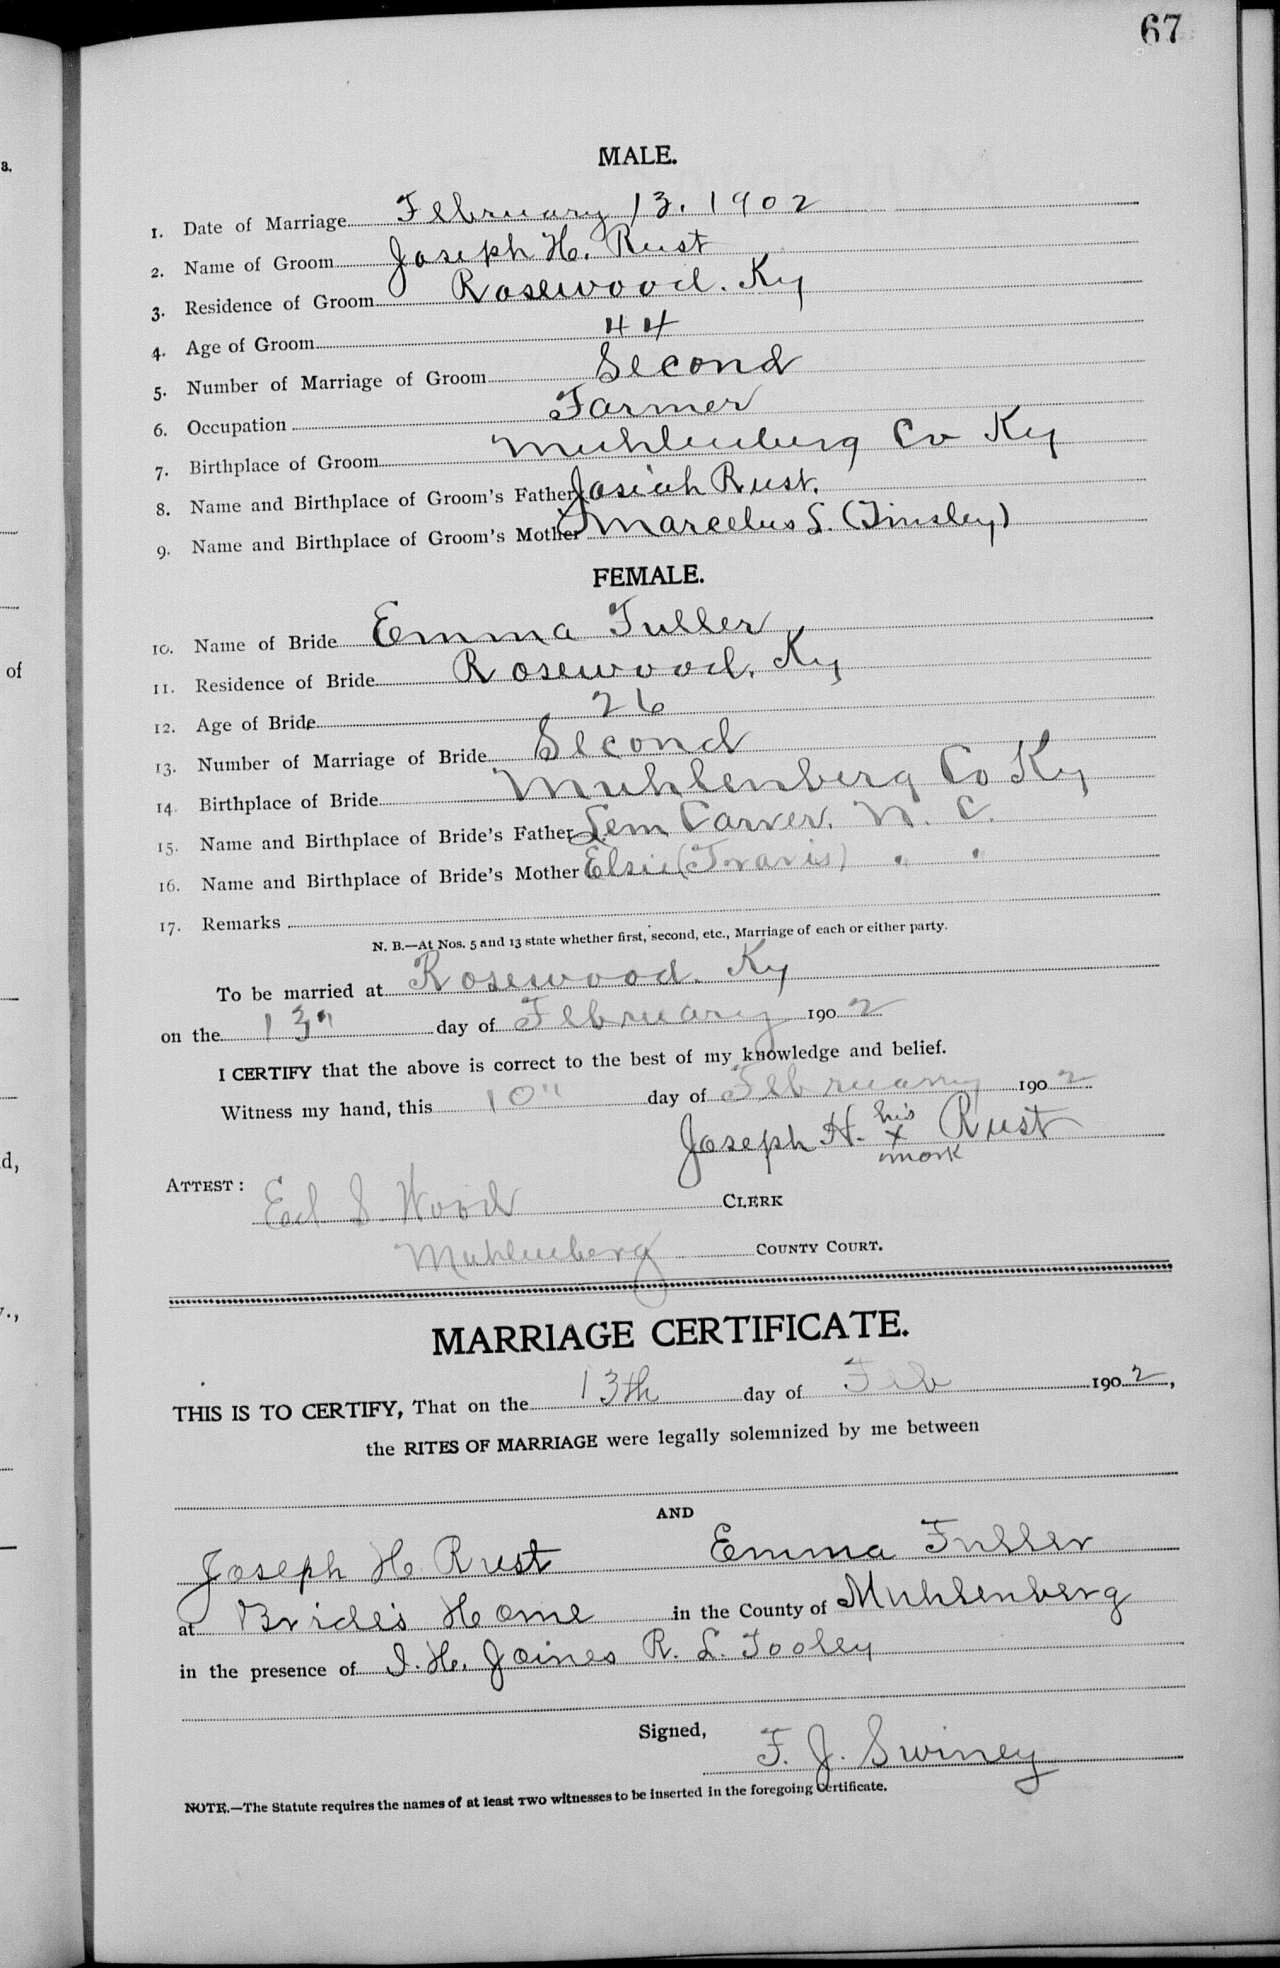 67
MALE.
1. Date of Marriage February 13. 1902
2. Name of Groom Joseph H. Rust
3. Residence of Groom Rosewood. Ky
4. Age of Groom 44
5. Number of Marriage of Groom Second
6. Occupation Farmer
7. Birthplace of Groom Muhlenberg Co Ky
8. Name and Birthplace of Groom's Father Josiah Rust.
9. Name and Birthplace of Groom's Mother Marcelus S. (Tinsley)
FEMALE.
10. Name of Bride Emma Fuller
11. Residence of Bride Rosewood. Ky
12. Age of Bride 26
13. Number of Marriage of Bride Second
14. Birthplace of Bride Muhlenberg Co Ky
15. Name and Birthplace of Bride's Father Lem Carver. N. C.
16. Name and Birthplace of Bride's Mother Elsie (Travis) " "
17. Remarks
N. B.—At Nos. 5 and 13 state whether first, second, etc., Marriage of each or either party.
To be married at Rosewood. Ky
on the 13" day of February 1902
I CERTIFY that the above is correct to the best of my knowledge and belief.
Witness my hand, this 10" day of February 1902
Joseph H. his x mark Rust
ATTEST: Ed S Wood CLERK
Muhlenberg COUNTY COURT.
MARRIAGE CERTIFICATE.
THIS IS TO CERTIFY, That on the 13th day of Feb 1902,
the RITES OF MARRIAGE were legally solemnized by me between
AND
Joseph H. Rust Emma Fuller
at Bride's Home in the County of Muhlenberg
in the presence of I. H. Joines R. L. Tooley
Signed,
F. J. Swiney
NOTE.—The Statute requires the names of at least TWO witnesses to be inserted in the foregoing Certificate.